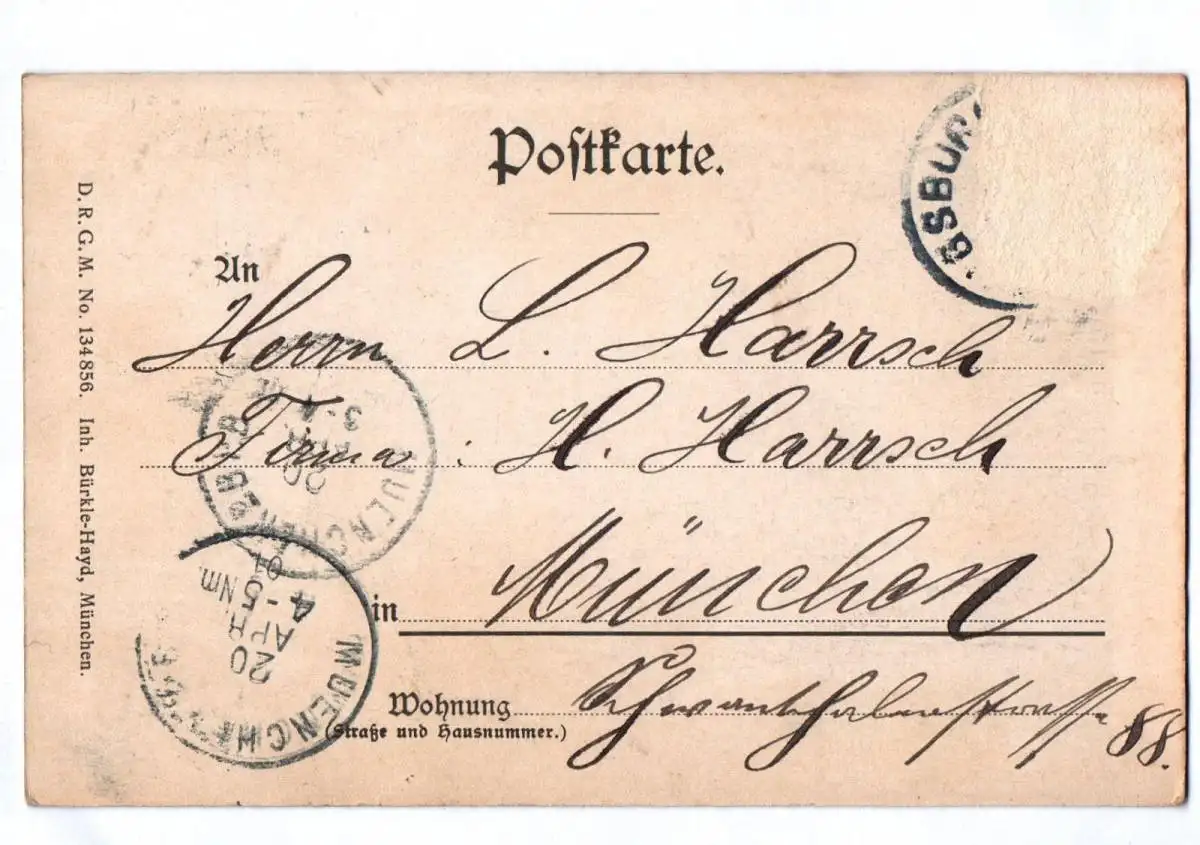 Postkarte.
GSBUR
An
Herrn L. Harrsch
Firma : H. Harrsch
in München
Wohnung Schwanthalerstrasse 88.
(Straße und Hausnummer.)
D. R. G. M. No. 134856. Inh. Bürkle-Hayd, München.
MUENCHEN 2 B.B.
20
APR
3-4
MUENCHEN
20
APR
4-5 Nm.
01